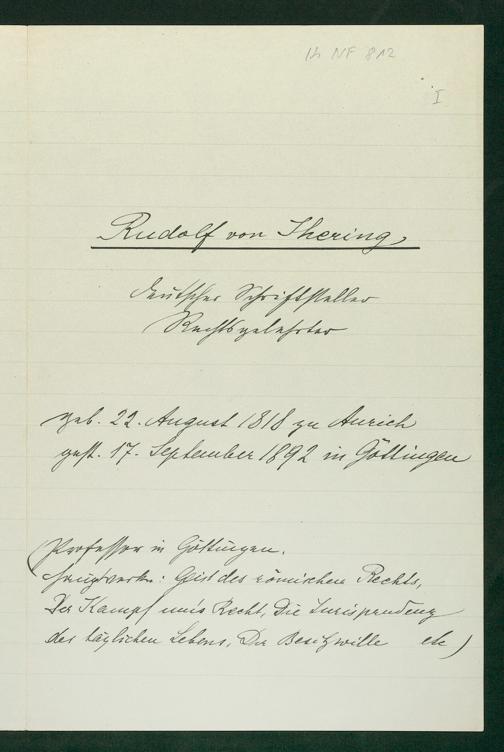 Ih NF 812
I
Rudolf von Ihering,
deutscher Schriftsteller
Rechtsgelehrter
geb. 22. August 1818 zu Aurich
gest. 17. September 1892 in Göttingen
(Professor in Göttingen.
Hauptwerke: Geist des römischen Rechts,
Der Kampf ums Recht, Die Jurisprudenz
des täglichen Lebens, Der Besitzwille etc)